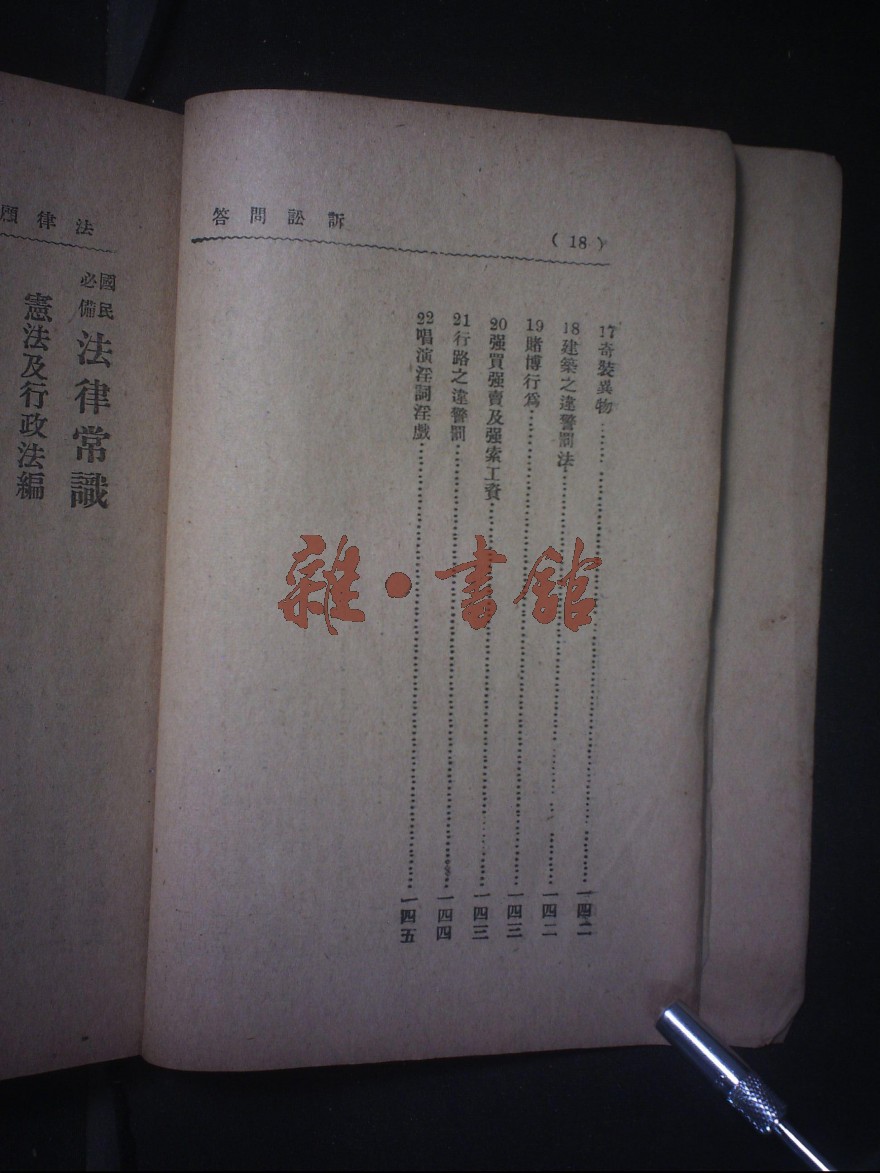 (18)
訴訟問答
17奇裝異物……一四二
18建築之違警罰法……一四二
19賭博行爲……一四三
20强買强賣及强索工資……一四三
21行路之違警罰……一四四
22唱演淫詞淫戲……一四五
法律顧
國民必備
法律常識
憲法及行政法編
雜·書館